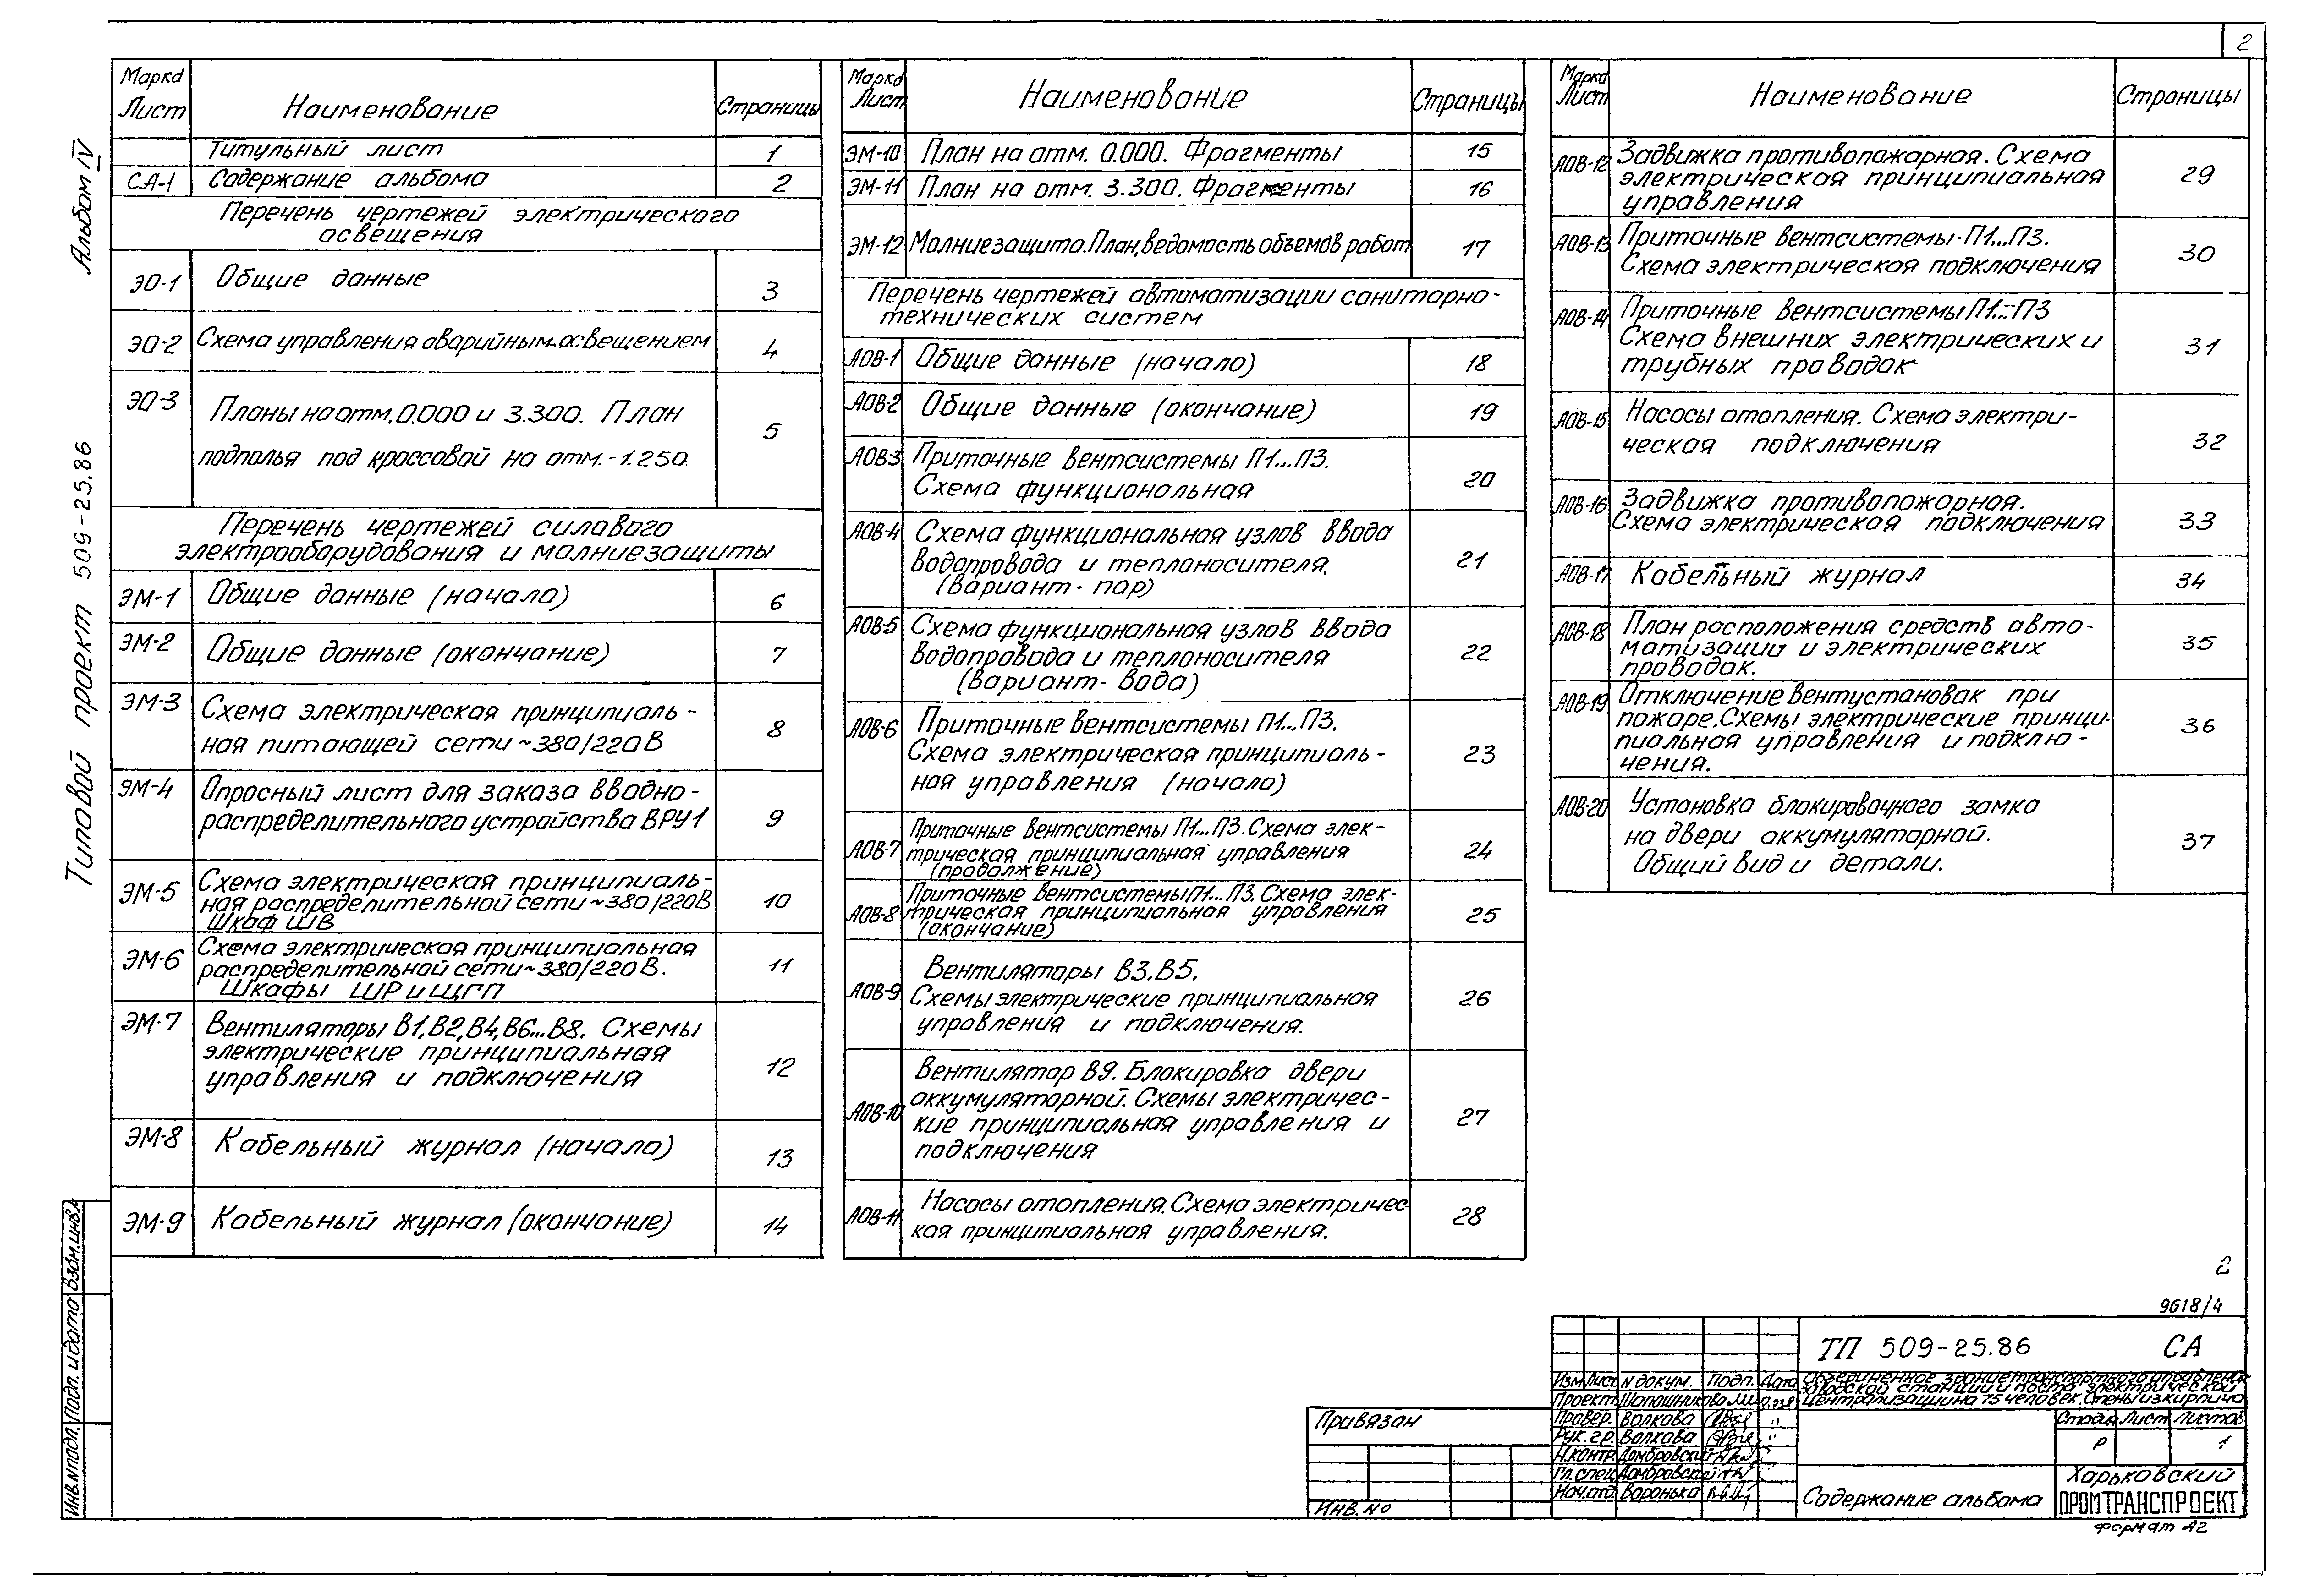 2
Альбом IV
Типовой проект 509-25.86
Марка Лист Наименование Страницы
Титульный лист 1
СА-1 Содержание альбома 2
Перечень чертежей электрического
освещения
ЭО-1 Общие данные 3
ЭО-2 Схема управления аварийным освещением 4
ЭО-3 Планы на отм. 0.000 и 3.300. План
подполья под кроссовой на отм. -1.250. 5
Перечень чертежей силового
электрооборудования и молниезащиты
ЭМ-1 Общие данные (начало) 6
ЭМ-2 Общие данные (окончание) 7
ЭМ-3 Схема электрическая принципиаль-
ная питающей сети ~380/220В 8
ЭМ-4 Опросный лист для заказа вводно-
распределительного устройства ВРУ1 9
ЭМ-5 Схема электрическая принципиаль-
ная распределительной сети ~380/220В
Шкаф ШВ 10
ЭМ-6 Схема электрическая принципиальная
распределительной сети ~380/220В.
Шкафы ШР и ЩГП 11
ЭМ-7 Вентиляторы В1, В2, В4, В6...В8. Схемы
электрические принципиальная
управления и подключения 12
ЭМ-8 Кабельный журнал (начало) 13
ЭМ-9 Кабельный журнал (окончание) 14
Марка Лист Наименование Страницы
ЭМ-10 План на отм. 0.000. Фрагменты 15
ЭМ-11 План на отм. 3.300. Фрагменты 16
ЭМ-12 Молниезащита. План, ведомость объемов работ 17
Перечень чертежей автоматизации санитарно-
технических систем
АОВ-1 Общие данные (начало) 18
АОВ-2 Общие данные (окончание) 19
АОВ-3 Приточные вентсистемы П1...П3.
Схема функциональная 20
АОВ-4 Схема функциональная узлов ввода
водопровода и теплоносителя.
(вариант - пар) 21
АОВ-5 Схема функциональная узлов ввода
водопровода и теплоносителя
(вариант - вода) 22
АОВ-6 Приточные вентсистемы П1...П3.
Схема электрическая принципиаль-
ная управления (начало) 23
АОВ-7 Приточные вентсистемы П1...П3. Схема элек-
трическая принципиальная управления
(продолжение) 24
АОВ-8 Приточные вентсистемы П1...П3. Схема элек-
трическая принципиальная управления
(окончание) 25
АОВ-9 Вентиляторы В3, В5.
Схемы электрические принципиальная
управления и подключения. 26
АОВ-10 Вентилятор В9. Блокировка двери
аккумуляторной. Схемы электричес-
кие принципиальная управления и
подключения 27
АОВ-11 Насосы отопления. Схема электричес-
кая принципиальная управления. 28
Марка Лист Наименование Страницы
АОВ-12 Задвижка противопожарная. Схема
электрическая принципиальная
управления 29
АОВ-13 Приточные вентсистемы П1...П3.
Схема электрическая подключения 30
АОВ-14 Приточные вентсистемы П1...П3
Схема внешних электрических и
трубных проводок 31
АОВ-15 Насосы отопления. Схема электри-
ческая подключения 32
АОВ-16 Задвижка противопожарная.
Схема электрическая подключения 33
АОВ-17 Кабельный журнал 34
АОВ-18 План расположения средств авто-
матизации и электрических
проводок. 35
АОВ-19 Отключение вентустановок при
пожаре. Схемы электрические принци-
пиальная управления и подклю-
чения. 36
АОВ-20 Установка блокировочного замка
на двери аккумуляторной.
Общий вид и детали. 37
2
9618/4
ТП 509-25.86 СА
Изм Лист N докум. Подп. Дата
Объединенное здание транспортного управления,
заводской станции и поста электрической
централизации на 75 человек. Стены из кирпича
Проект. Шапошникова
Провер. Волкова
Рук. гр. Волкова
Н.контр. Домбровский
Гл.спец. Домбровский
Нач.отд. Воронька
Стадия Лист Листов
Р 1
Содержание альбома
Харьковский
ПРОМТРАНСПРОЕКТ
Формат А2
Привязан
Инв. №
Инв.N подл. Подп. и дата Взам.инв.N